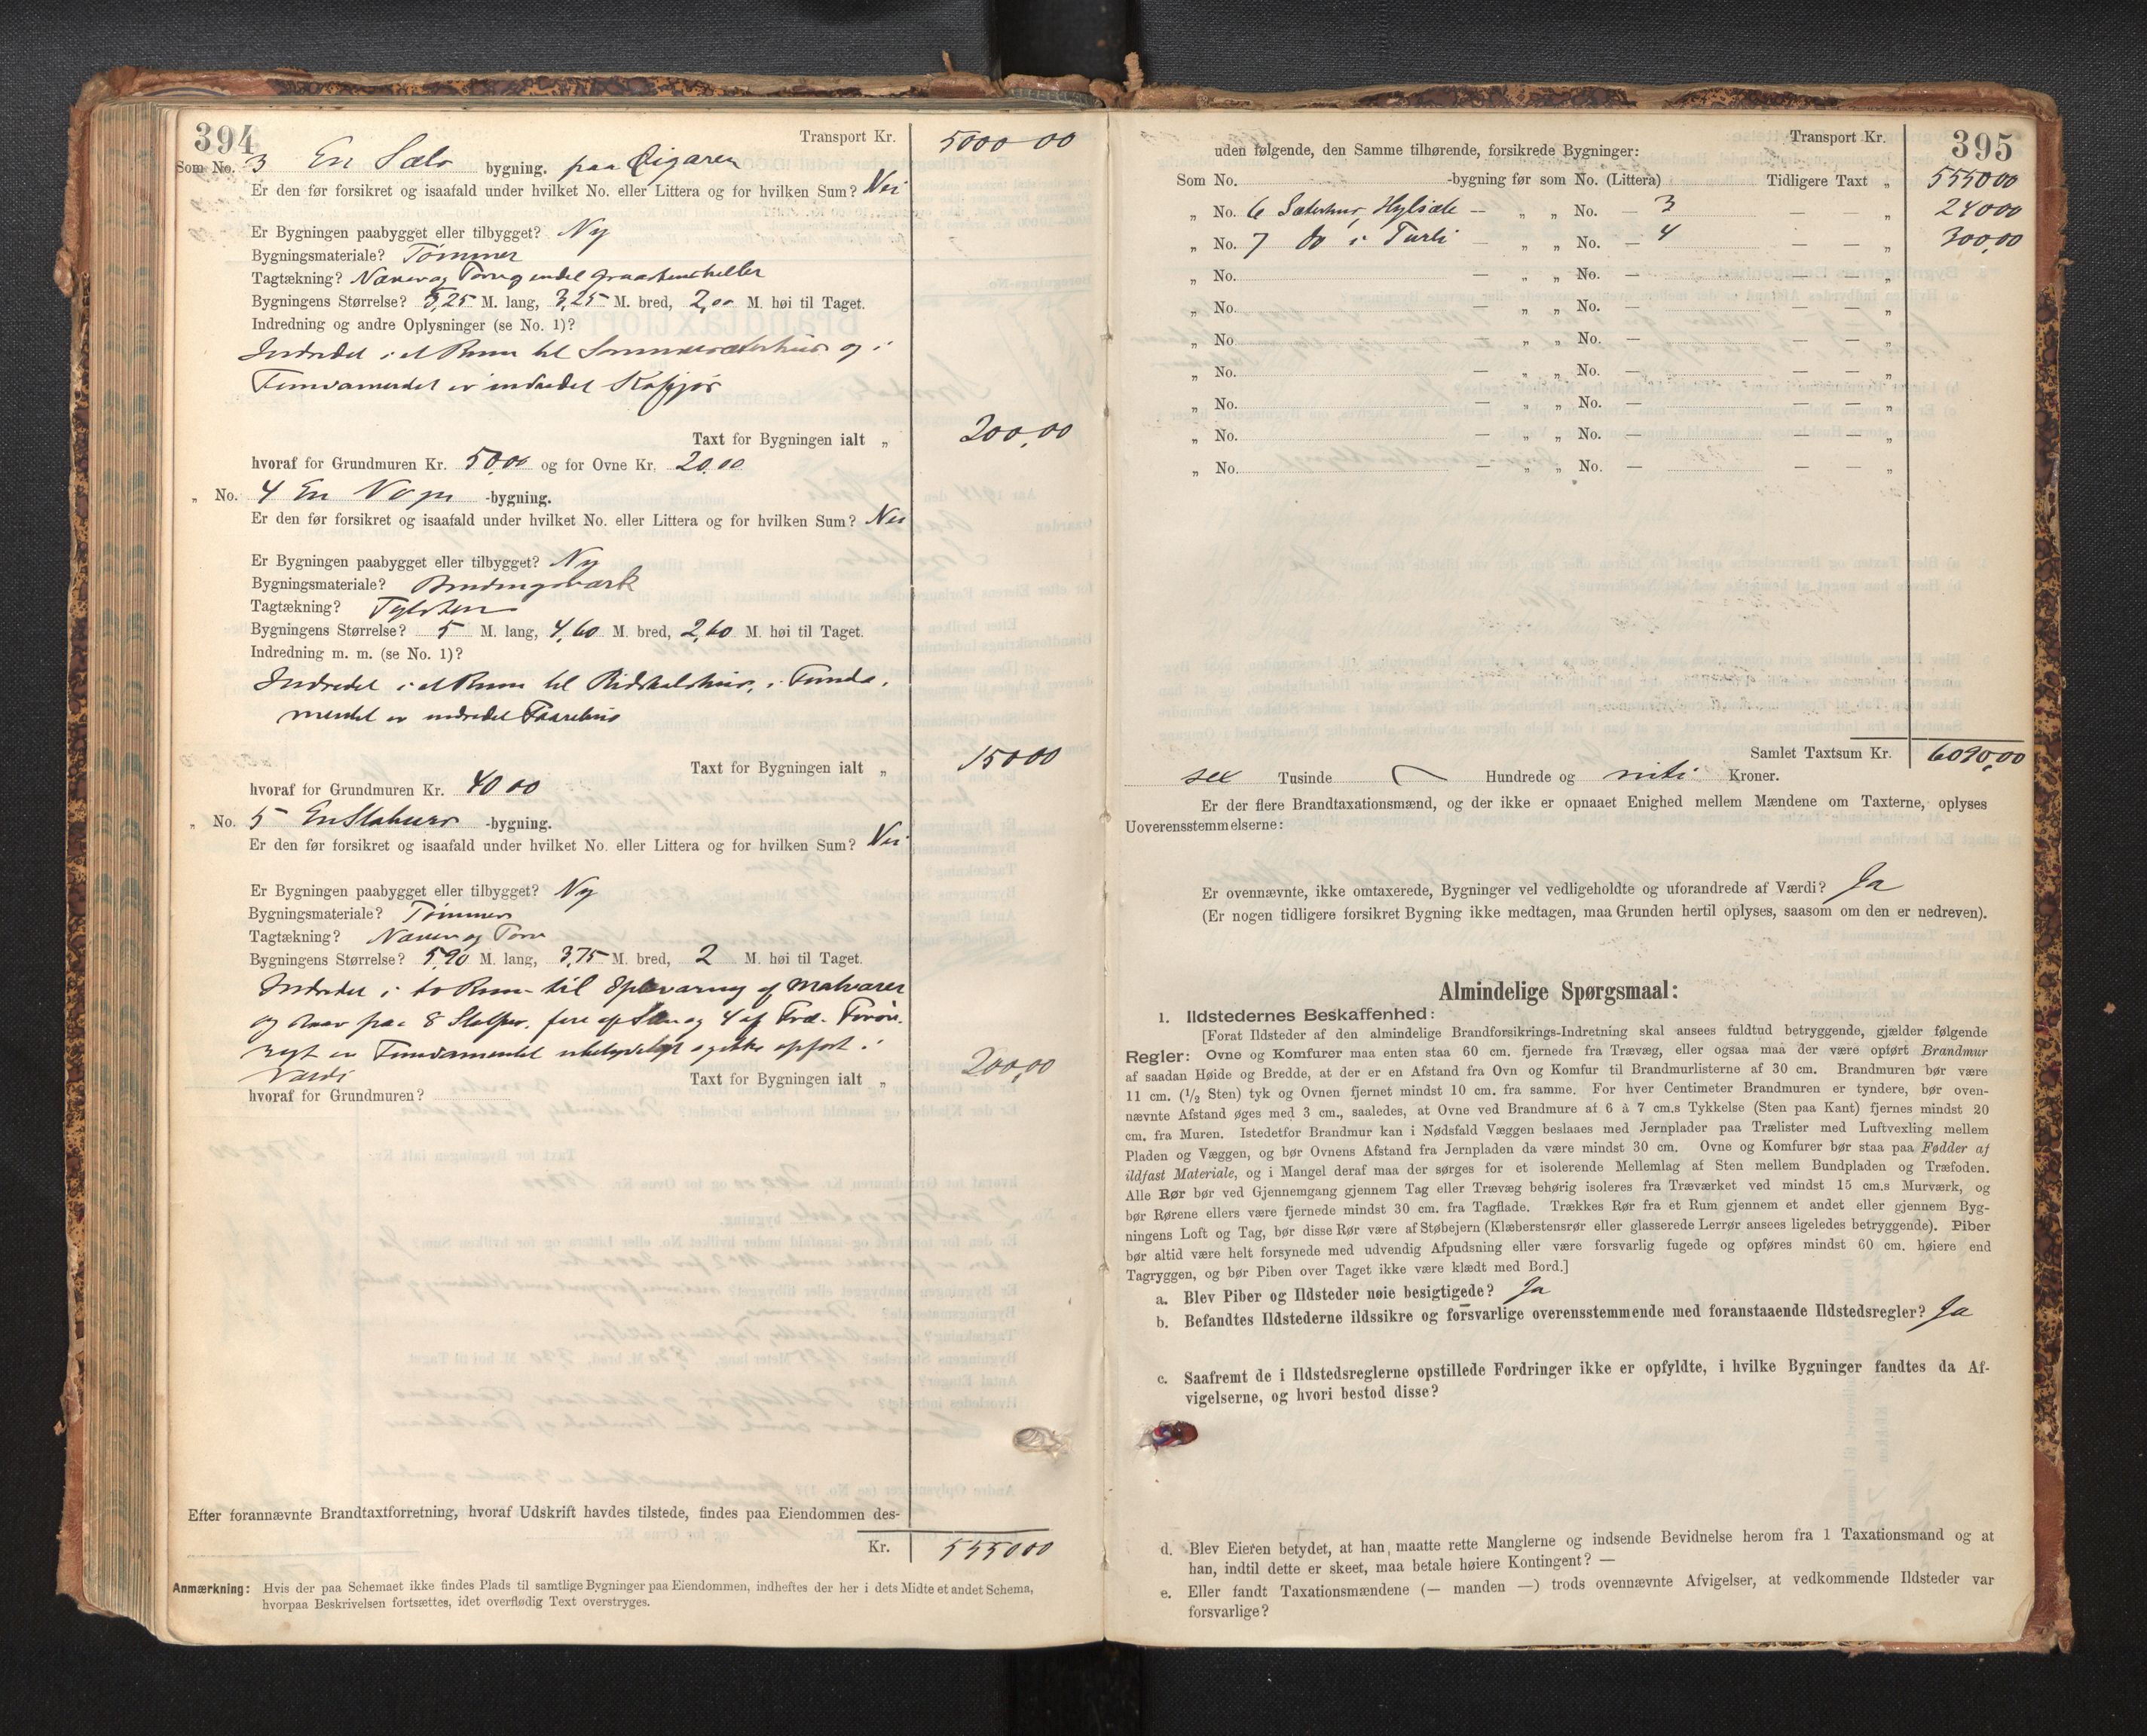 394
Transport Kr. 5000 00
Som No. 3 En Sæls bygning. paa Øigaren
Er den før forsikret og isaafald under hvilket No. eller Littera og for hvilken Sum? Nei
Er Bygningen paabygget eller tilbygget? Ny
Bygningsmateriale? Tømmer
Tagtækning? Næver og Torv og endel graastensheller
Bygningens Størrelse? 5,25 M. lang, 3,25 M. bred, 2,00 M. høi til Taget.
Indredning og andre Oplysninger (se No. 1)?
Indredet i et Rum til Sommersæterhus og i
Fundamentet er indredet
Taxt for Bygningen ialt „ 200,00
hvoraf for Grundmuren Kr. 50,00 og for Ovne Kr. 20.00
„ No. 4 En Vogn -bygning.
Er den før forsikret og isaafald under hvilket No. eller Littera og for hvilken Sum? Nei
Er Bygningen paabygget eller tilbygget? Ny
Bygningsmateriale? Bindingsværk
Tagtækning? Teglsten
Bygningens Størrelse? 5 M. lang, 4,60 M. bred, 2,60 M. høi til Taget.
Indredning m. m. (se No. 1)?
Indredet i et Rum til Ridskabshus, i Funda.
mentet er indredet Faarehus
Taxt for Bygningen ialt „ 150 00
hvoraf for Grundmuren Kr. 40 00
„ No. 5 En Staburs -bygning.
Er den før forsikret og isaafald under hvilket No. eller Littera og for hvilken Sum? Nei
Er Bygningen paabygget eller tilbygget? Ny
Bygningsmateriale? Tømmer
Tagtækning? Næver og Torv
Bygningens Størrelse? 5,90 M. lang, 3,75 M. bred, 2 M. høi til Taget.
Indredet i to Rum til Opbevaring af Matvarer
og staar paa 8 Stolper, fire af Sten og 4 af Træ. Forøv.
rigt er Fundamentet ubetydeligt og ikke opført i
Værdi
Taxt for Bygningen ialt „ 200,00
hvoraf for Grundmuren?
Efter forannævnte Brandtaxtforretning, hvoraf Udskrift havdes tilstede, findes paa Eiendommen des-
Kr. 5550 00
Anmærkning: Hvis der paa Schemaet ikke findes Plads til samtlige Bygninger paa Eiendommen, indheftes der her i dets Midte et andet Schema,
hvorpaa Beskrivelsen fortsættes, idet overflødig Text overstryges.
395
Transport Kr.
uden følgende, den Samme tilhørende, forsikrede Bygninger:
Som No. -bygning før som No. (Littera) Tidligere Taxt „ 5550 00
„ No. 6 Sæterhus, Hylsæte — „ „ No. — 3 — — „ 240 00
„ No. 7 do i Turli — „ „ No. — 4 — — „ 300,00
„ No. — „ „ No. — — — „
„ No. — „ „ No. — — — „
„ No. — „ „ No. — — — „
„ No. — „ „ No. — — — „
„ No. — „ „ No. — — — „
„ No. — „ „ No. — — — „
„ No. — „ „ No. — — — „
Samlet Taxtsum Kr. 6090,00
sex Tusinde Hundrede og niti Kroner.
Er der flere Brandtaxationsmænd, og der ikke er opnaaet Enighed mellem Mændene om Taxterne, oplyses
Uoverensstemmelserne:
Er ovennævnte, ikke omtaxerede, Bygninger vel vedligeholdte og uforandrede af Værdi? Ja
(Er nogen tidligere forsikret Bygning ikke medtagen, maa Grunden hertil oplyses, saasom om den er nedreven).
Almindelige Spørgsmaal:
1. Ildstedernes Beskaffenhed:
[Forat Ildsteder af den almindelige Brandforsikrings-Indretning skal ansees fuldtud betryggende, gjælder følgende
Regler: Ovne og Komfurer maa enten staa 60 cm. fjernede fra Trævæg, eller ogsaa maa der være opført Brandmur
af saadan Høide og Bredde, at der er en Afstand fra Ovn og Komfur til Brandmurlisterne af 30 cm. Brandmuren bør være
11 cm. (1/2 Sten) tyk og Ovnen fjernet mindst 10 cm. fra samme. For hver Centimeter Brandmuren er tyndere, bør oven-
nævnte Afstand øges med 3 cm., saaledes, at Ovne ved Brandmure af 6 à 7 cm.s Tykkelse (Sten paa Kant) fjernes mindst 20
cm. fra Muren. Istedetfor Brandmur kan i Nødsfald Væggen beslaaes med Jernplader paa Trælister med Luftvexling mellem
Pladen og Væggen, og bør Ovnens Afstand fra Jernpladen da være mindst 30 cm. Ovne og Komfurer bør staa paa Fødder af
ildfast Materiale, og i Mangel deraf maa der sørges for et isolerende Mellemlag af Sten mellem Bundpladen og Træfoden.
Alle Rør bør ved Gjennemgang gjennem Tag eller Trævæg behørig isoleres fra Træværket ved mindst 15 cm.s Murværk, og
bør Rørene ellers være fjernede mindst 30 cm. fra Tagflade. Trækkes Rør fra et Rum gjennem et andet eller gjennem Byg-
ningens Loft og Tag, bør disse Rør være af Støbejern (Klæberstensrør eller glasserede Lerrør ansees ligeledes betryggende). Piber
bør altid være helt forsynede med udvendig Afpudsning eller være forsvarlig fugede og opføres mindst 60 cm. høiere end
Tagryggen, og bør Piben over Taget ikke være klædt med Bord.]
a. Blev Piber og Ildsteder nøie besigtigede? Ja
b. Befandtes Ildstederne ildssikre og forsvarlige overensstemmende med foranstaaende Ildstedsregler? Ja
c. Saafremt de i Ildstedsreglerne opstillede Fordringer ikke er opfyldte, i hvilke Bygninger fandtes da Af-
vigelserne, og hvori bestod disse?
d. Blev Eieren betydet, at han maatte rette Manglerne og indsende Bevidnelse herom fra 1 Taxationsmand og at
han, indtil dette er skeet, maa betale høiere Kontingent? —
e. Eller fandt Taxationsmændene (— manden —) trods ovennævnte Afvigelser, at vedkommende Ildsteder var
forsvarlige?